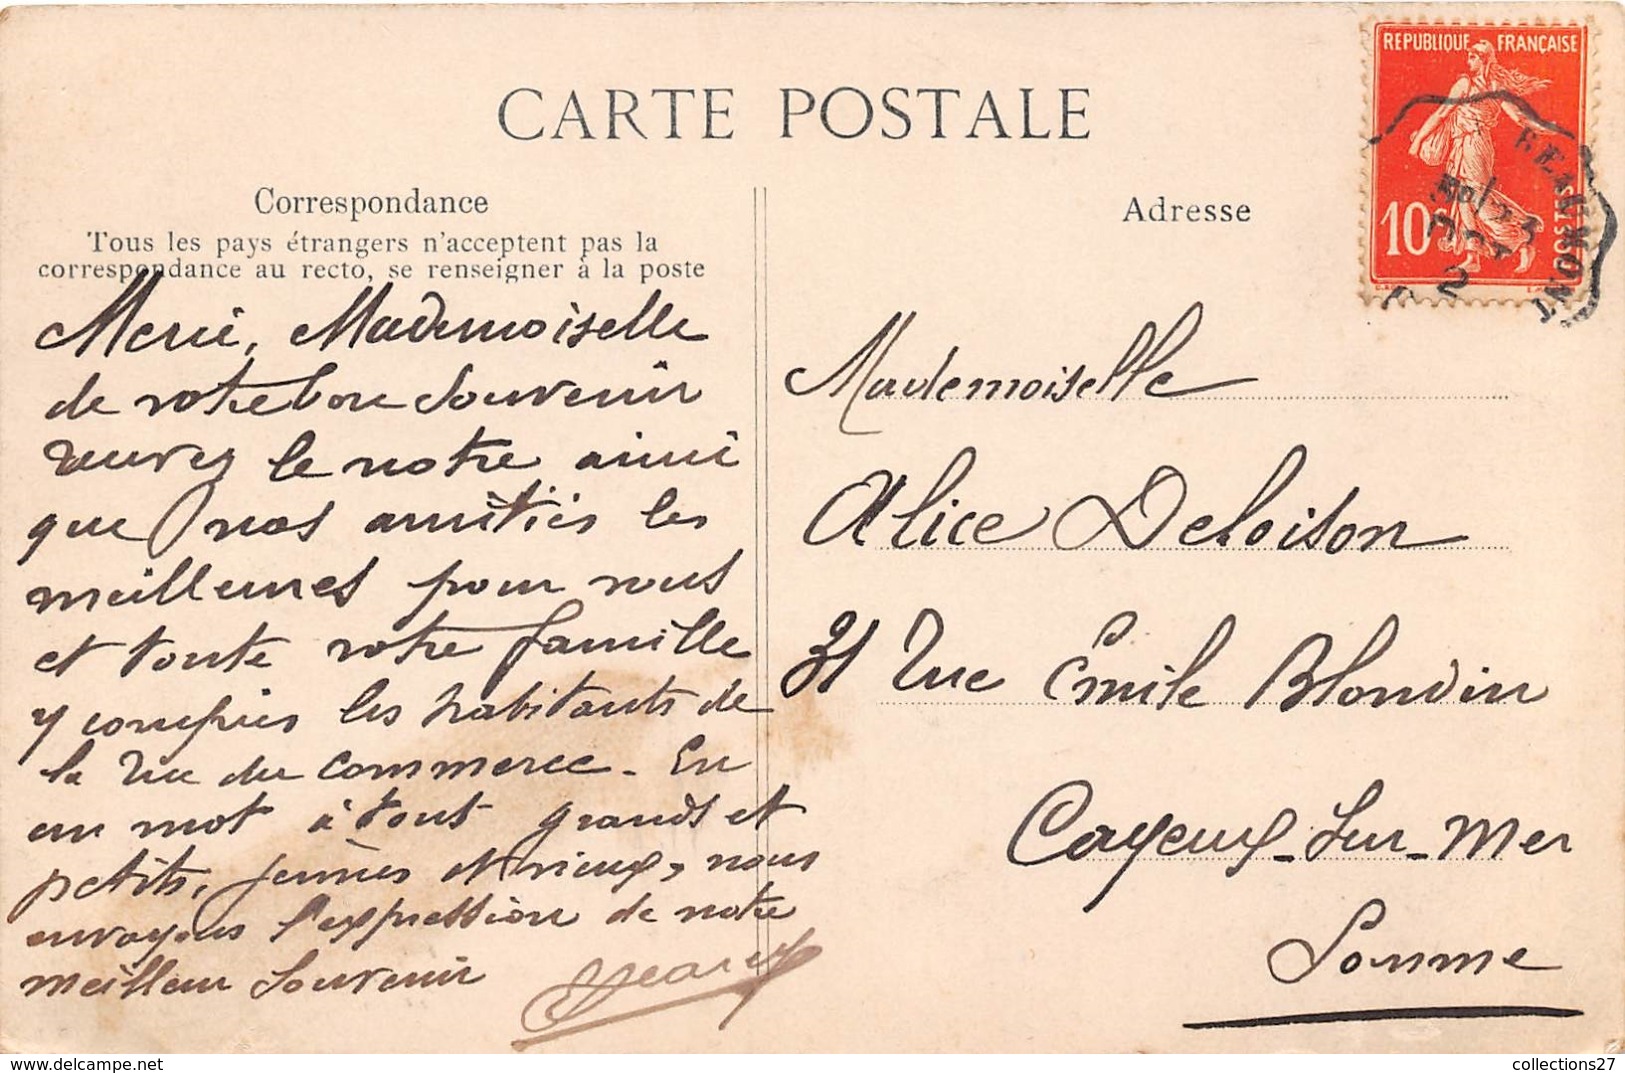 CARTE POSTALE
Correspondance
Tous les pays étrangers n'acceptent pas la
correspondance au recto, se renseigner à la poste
Merci, Mademoiselle
de votre bon souvenir
recevez le notre ainsi
que nos amitiés les
meilleures pour vous
et toute votre famille
y compris les habitants de
la rue du Commerce - En
un mot à tous grands et
petits, jeunes et vieux, nous
envoyons l'expression de notre
meilleur souvenir
Adresse
Mademoiselle
Alice Deloison
31 rue Emile Blondin
Cayeux-sur-Mer
Somme
REPUBLIQUE FRANÇAISE
10c
POSTES
2
collections27